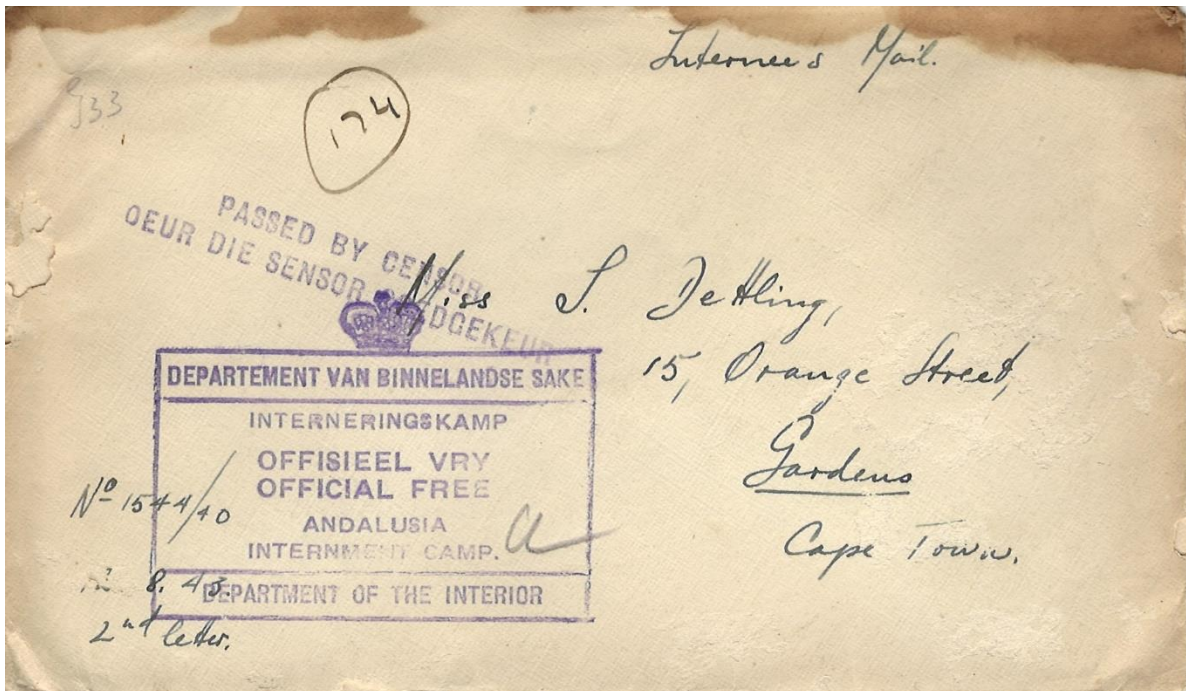 Internees Mail.
933
174
PASSED BY CENSOR
DEUR DIE SENSOR GOEDGEKEUR
Miss S. Dettling,
15, Orange Street,
Gardens
Cape Town.
DEPARTEMENT VAN BINNELANDSE SAKE
INTERNERINGSKAMP
OFFISIEEL VRY
OFFICIAL FREE
ANDALUSIA
INTERNMENT CAMP.
DEPARTMENT OF THE INTERIOR
No 1544/40
8. 43.
2nd letter.